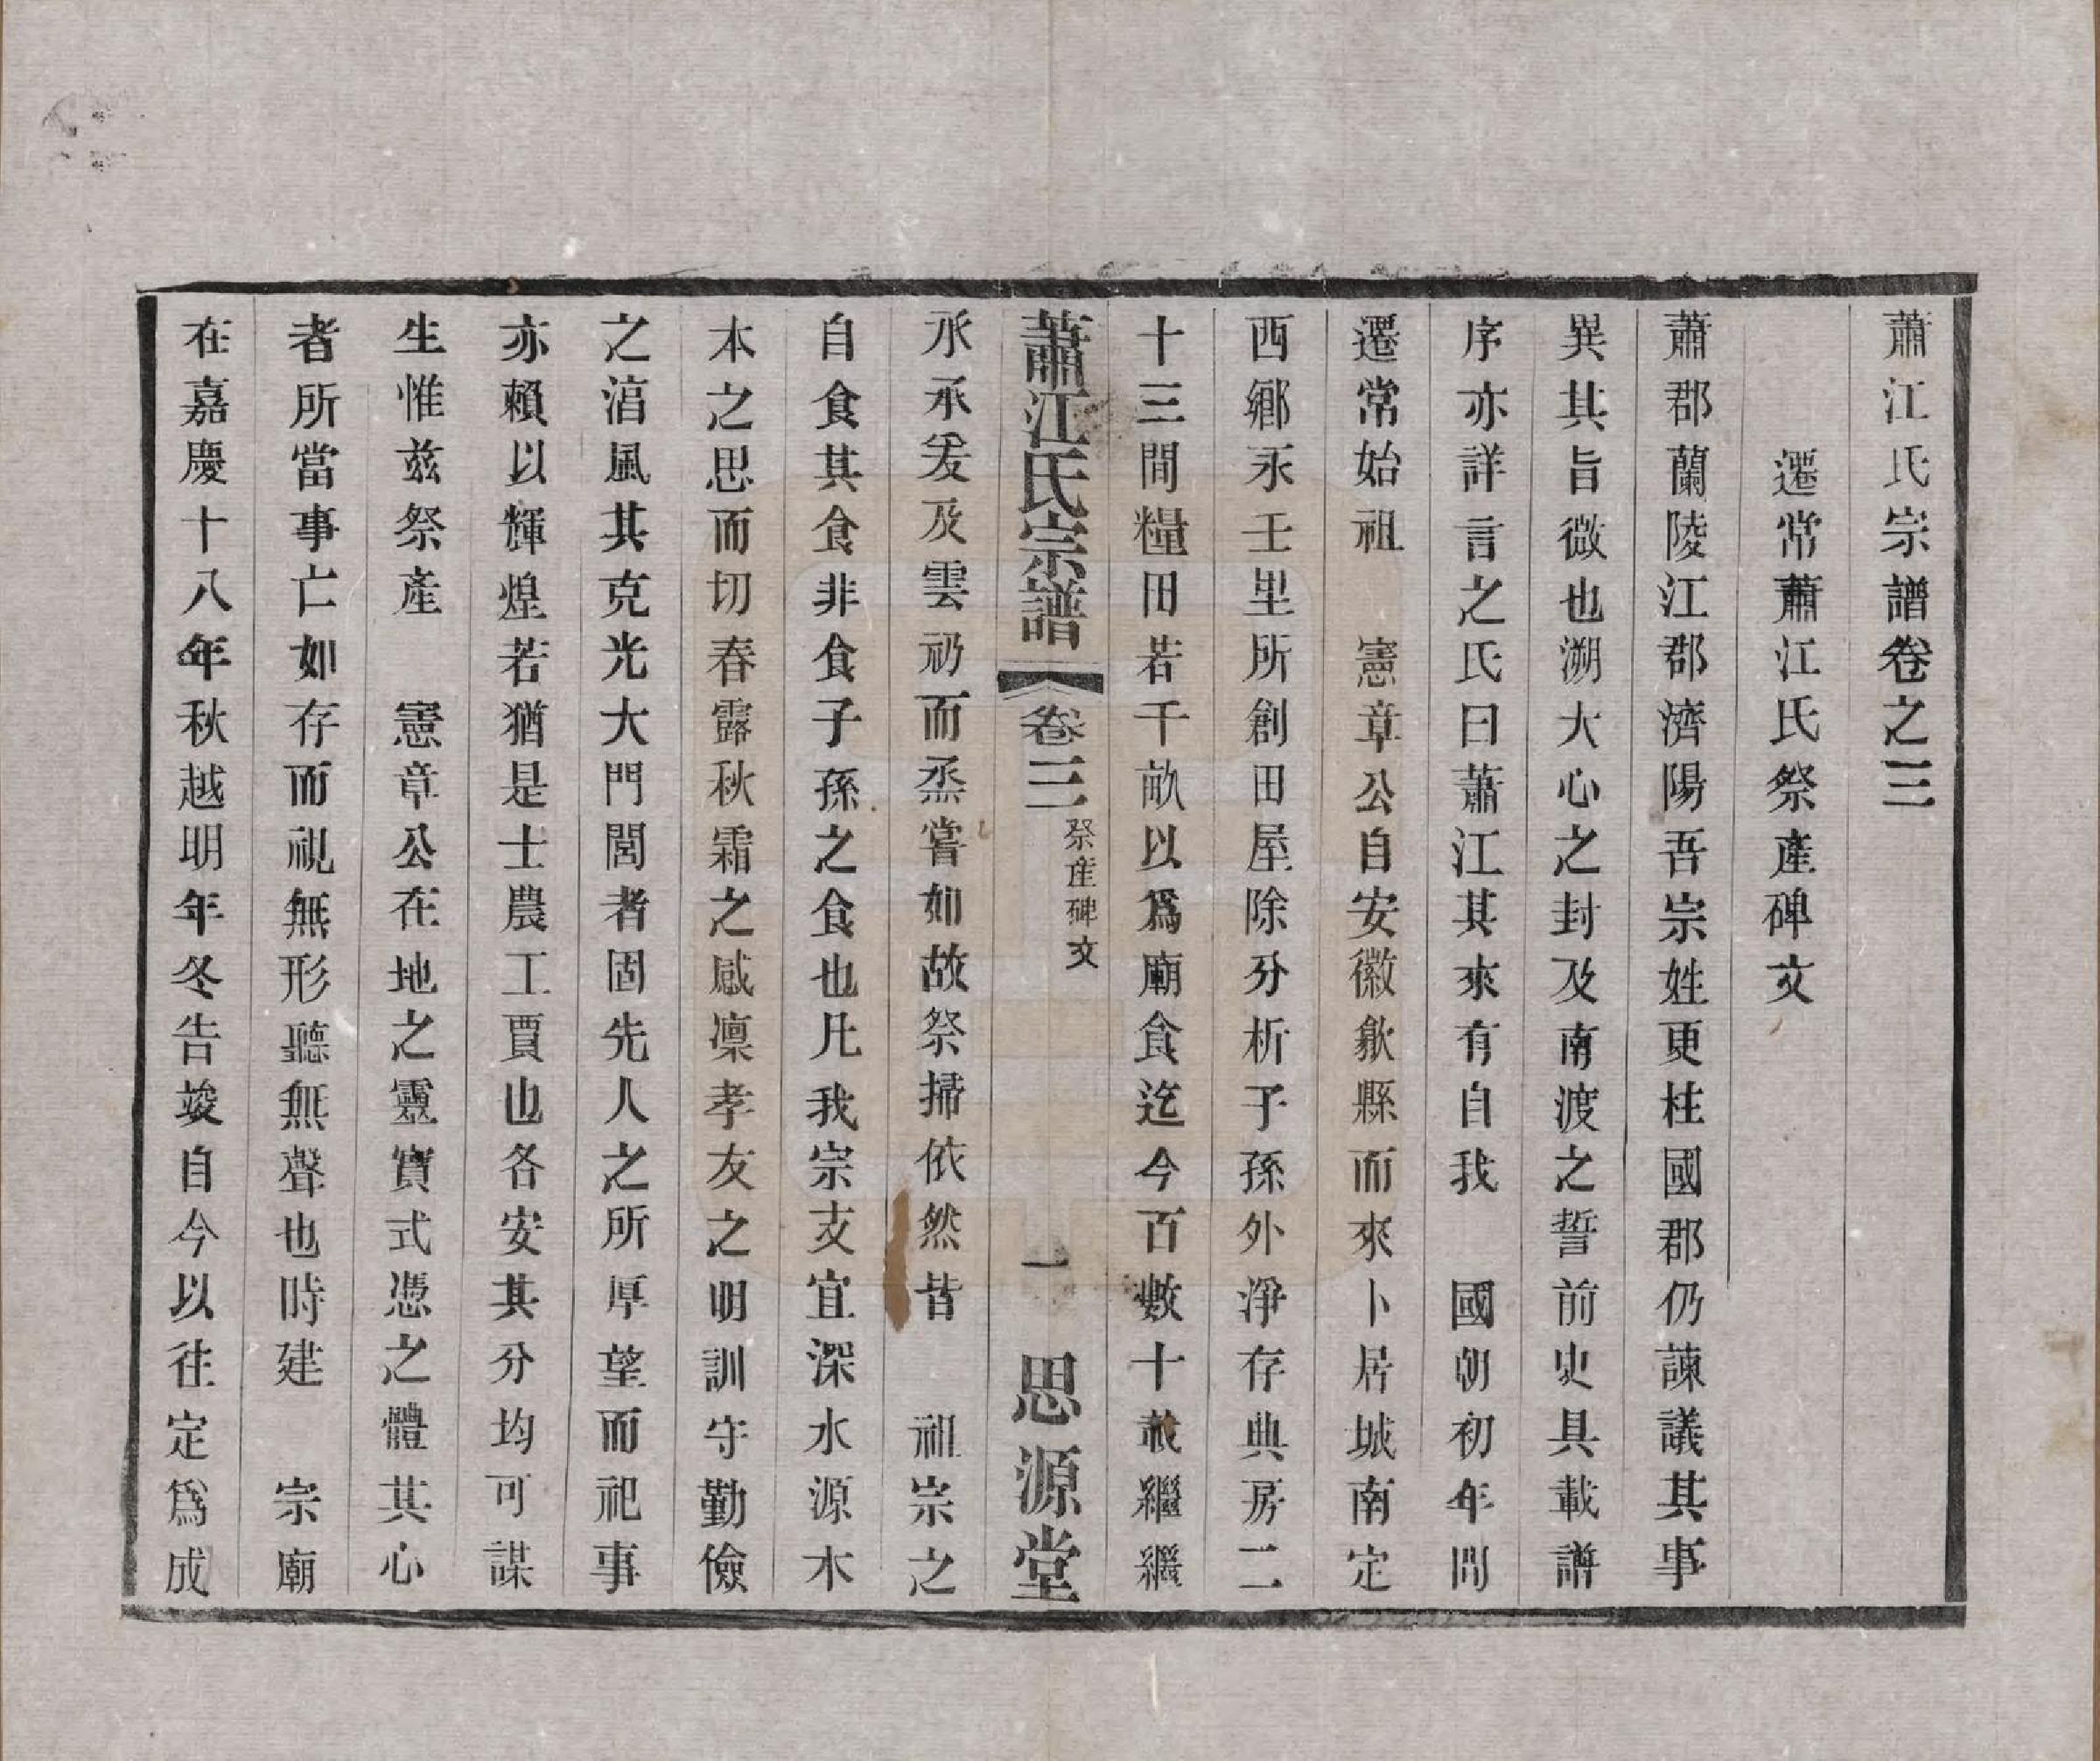 蕭江氏宗譜卷之三
遷常蕭江氏祭產碑文
蕭郡蘭陵江郡濟陽吾宗姓更柱國郡仍諫議其事
異其旨微也溯大心之封及南渡之誓前史具載譜
序亦詳言之氏曰蕭江其來有自我　國朝初年間
遷常始祖　憲章公自安徽歙縣而來卜居城南定
西鄉永壬里所創田屋除分析子孫外淨存典房二
十三間糧田若干畝以為廟食迄今百數十載繼繼
蕭江氏宗譜
卷三
祭產碑文
一
思源堂
承承爰及雲礽而烝嘗如故祭掃依然昔　祖宗之
自食其食非食子孫之食也凡我宗支宜深水源木
本之思而切春露秋霜之感凜孝友之明訓守勤儉
之湻風其克光大門閭者固先人之所厚望而祀事
亦賴以輝煌若猶是士農工賈也各安其分均可謀
生惟茲祭產　憲章公在地之靈實式憑之體其心
者所當事亡如存而視無形聽無聲也時建　宗廟
在嘉慶十八年秋越明年冬告竣自今以往定為成